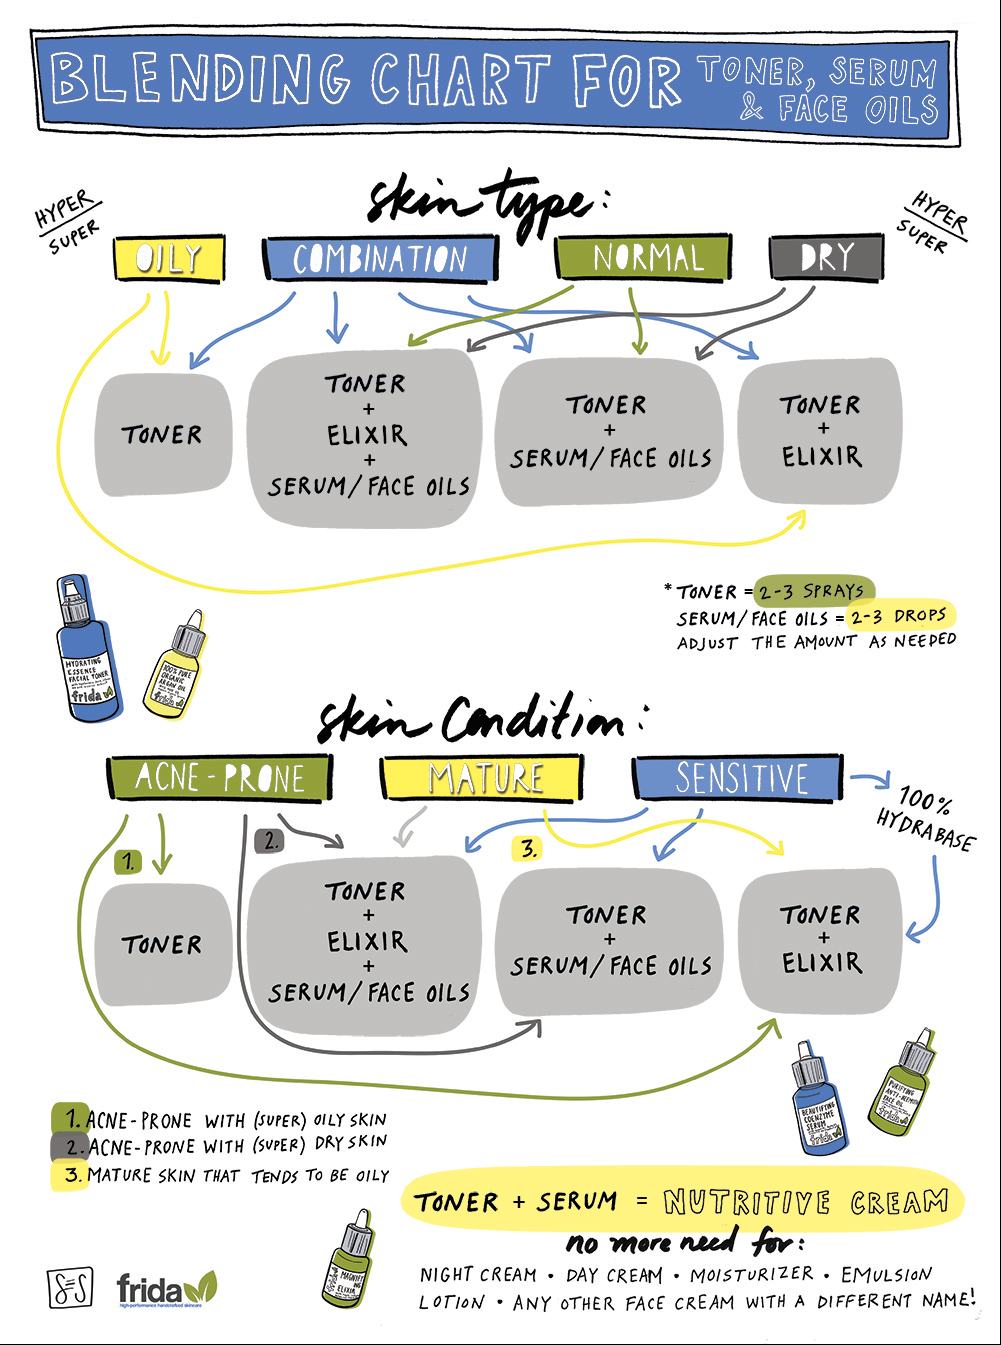 BLENDING CHART FOR TONER, SERUM
& FACE OILS
skin type:
HYPER
SUPER
HYPER
SUPER
OILY
COMBINATION
NORMAL
DRY
TONER
TONER
+
ELIXIR
+
SERUM/FACE OILS
TONER
+
SERUM/FACE OILS
TONER
+
ELIXIR
* TONER = 2-3 SPRAYS
SERUM/FACE OILS = 2-3 DROPS
ADJUST THE AMOUNT AS NEEDED
HYDRATING
ESSENCE
FACIAL TONER
frida
100% PURE
ORGANIC
ARGAN OIL
frida
skin Condition:
ACNE-PRONE
MATURE
SENSITIVE
100%
HYDRABASE
1.
2.
3.
TONER
TONER
+
ELIXIR
+
SERUM/FACE OILS
TONER
+
SERUM/FACE OILS
TONER
+
ELIXIR
BEAUTIFYING
COENZYME
SERUM
frida
PURIFYING
ANTI-BLEMISH
FACE OIL
frida
1. ACNE-PRONE WITH (SUPER) OILY SKIN
2. ACNE-PRONE WITH (SUPER) DRY SKIN
3. MATURE SKIN THAT TENDS TO BE OILY
TONER + SERUM = NUTRITIVE CREAM
no more need for:
NIGHT CREAM • DAY CREAM • MOISTURIZER • EMULSION
LOTION • ANY OTHER FACE CREAM WITH A DIFFERENT NAME!
MAGNIFY
ING
ELIXIR
frida
high-performance handcrafted skincare